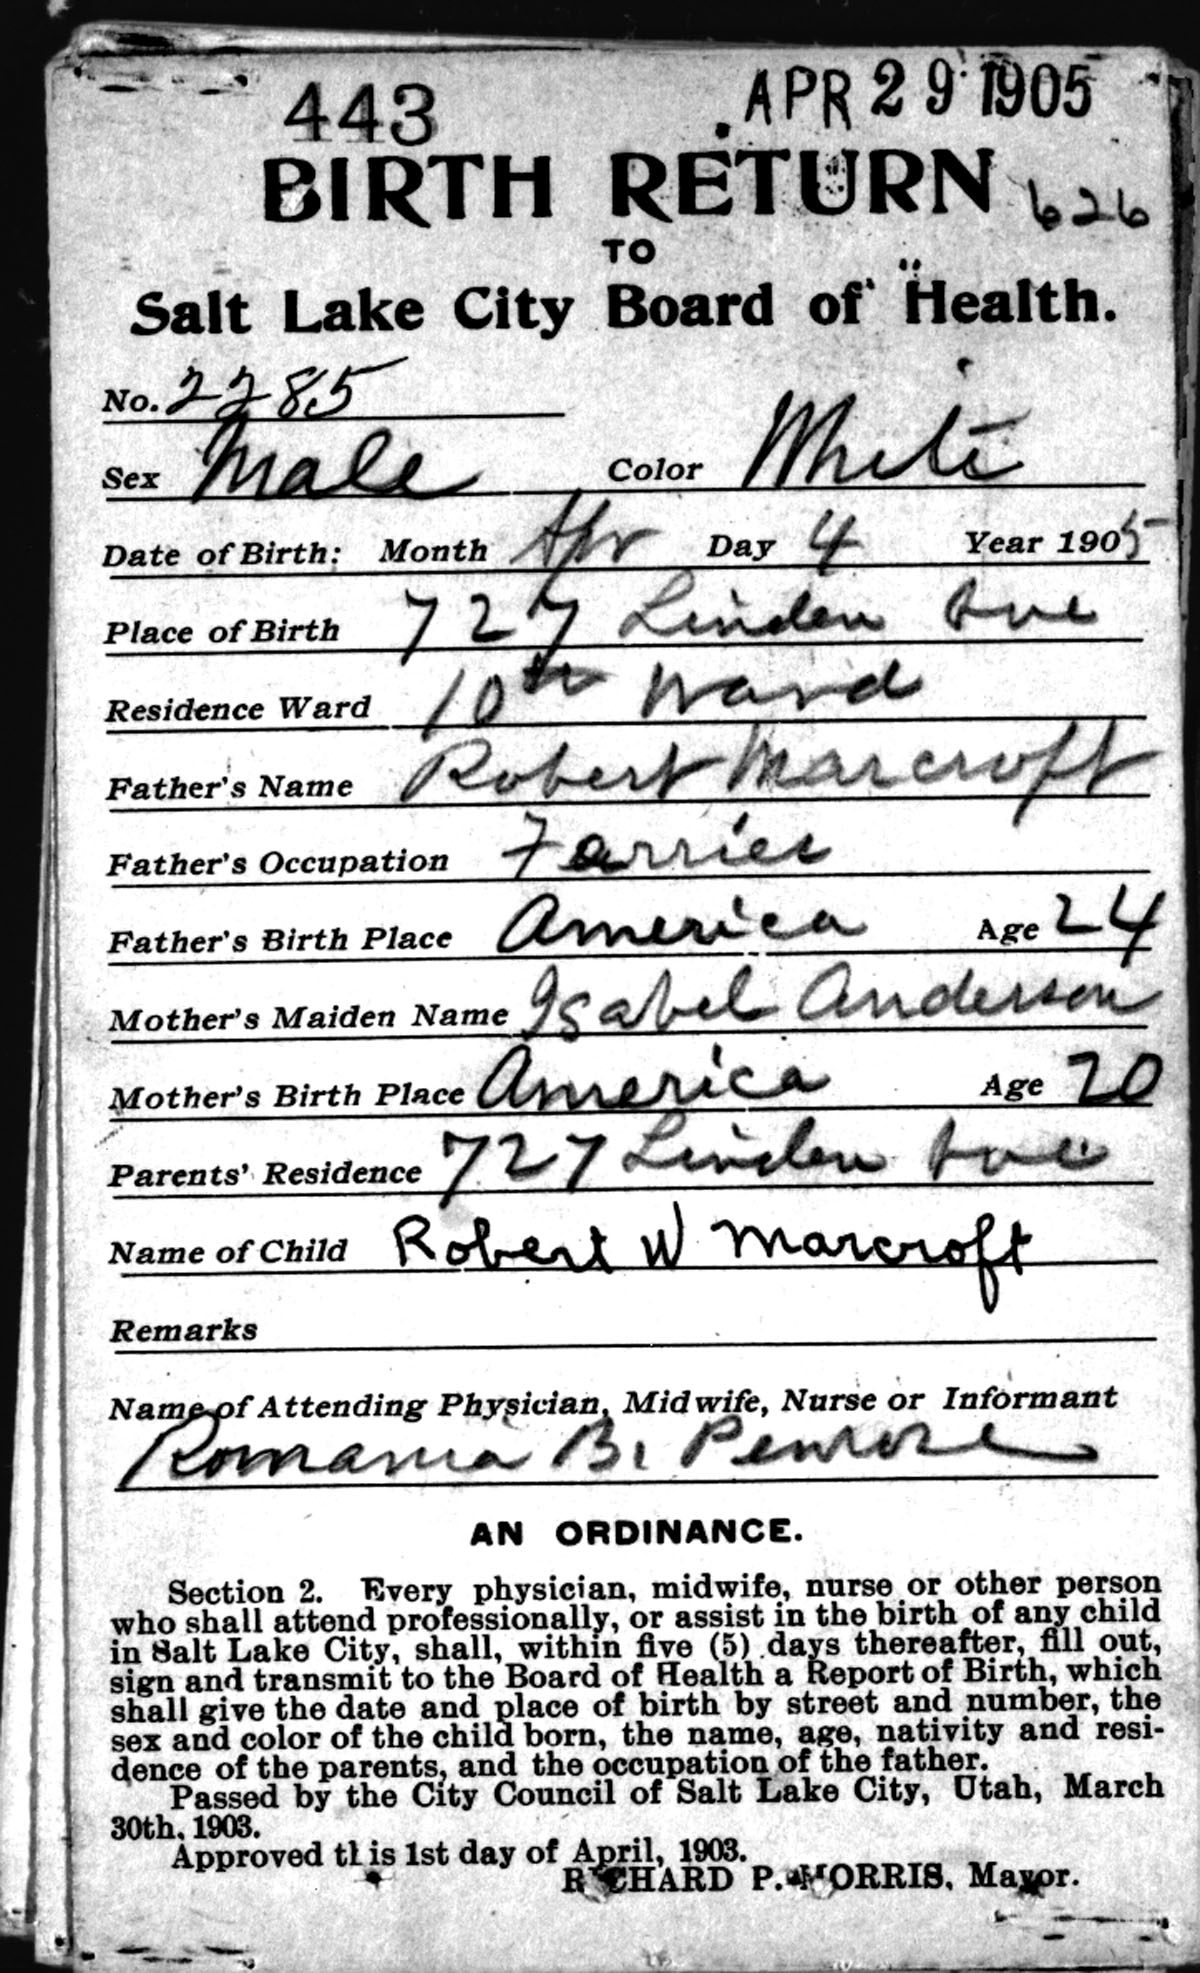 443 APR 29 1905
BIRTH RETURN 626
TO
Salt Lake City Board of Health.
No. 2285
Sex Male Color White
Date of Birth: Month Apr Day 4 Year 1905
Place of Birth 727 Linden Ave
Residence Ward 10th Ward
Father's Name Robert Marcroft
Father's Occupation Farrier
Father's Birth Place America Age 24
Mother's Maiden Name Isabel Anderson
Mother's Birth Place America Age 20
Parents' Residence 727 Linden Ave
Name of Child Robert W Marcroft
Remarks
Name of Attending Physician, Midwife, Nurse or Informant
Romania B. Penrose
AN ORDINANCE.
Section 2. Every physician, midwife, nurse or other person
who shall attend professionally, or assist in the birth of any child
in Salt Lake City, shall, within five (5) days thereafter, fill out,
sign and transmit to the Board of Health a Report of Birth, which
shall give the date and place of birth by street and number, the
sex and color of the child born, the name, age, nativity and resi-
dence of the parents, and the occupation of the father.
Passed by the City Council of Salt Lake City, Utah, March
30th, 1903.
Approved this 1st day of April, 1903.
RICHARD P. MORRIS, Mayor.